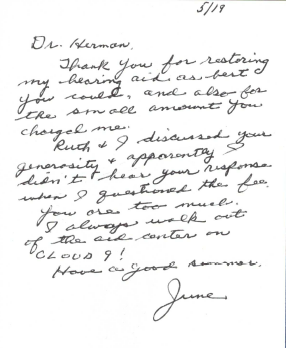 5/19
Dr. Herman,
Thank you for restoring
my hearing aid as best
you could, and also for
the small amount you
charged me.
Ruth & I discussed your
generosity & apparently I
didn't hear your response
when I questioned the fee.
You are too much.
I always walk out
of the aid center on
CLOUD 9!
Have a good summer.
June